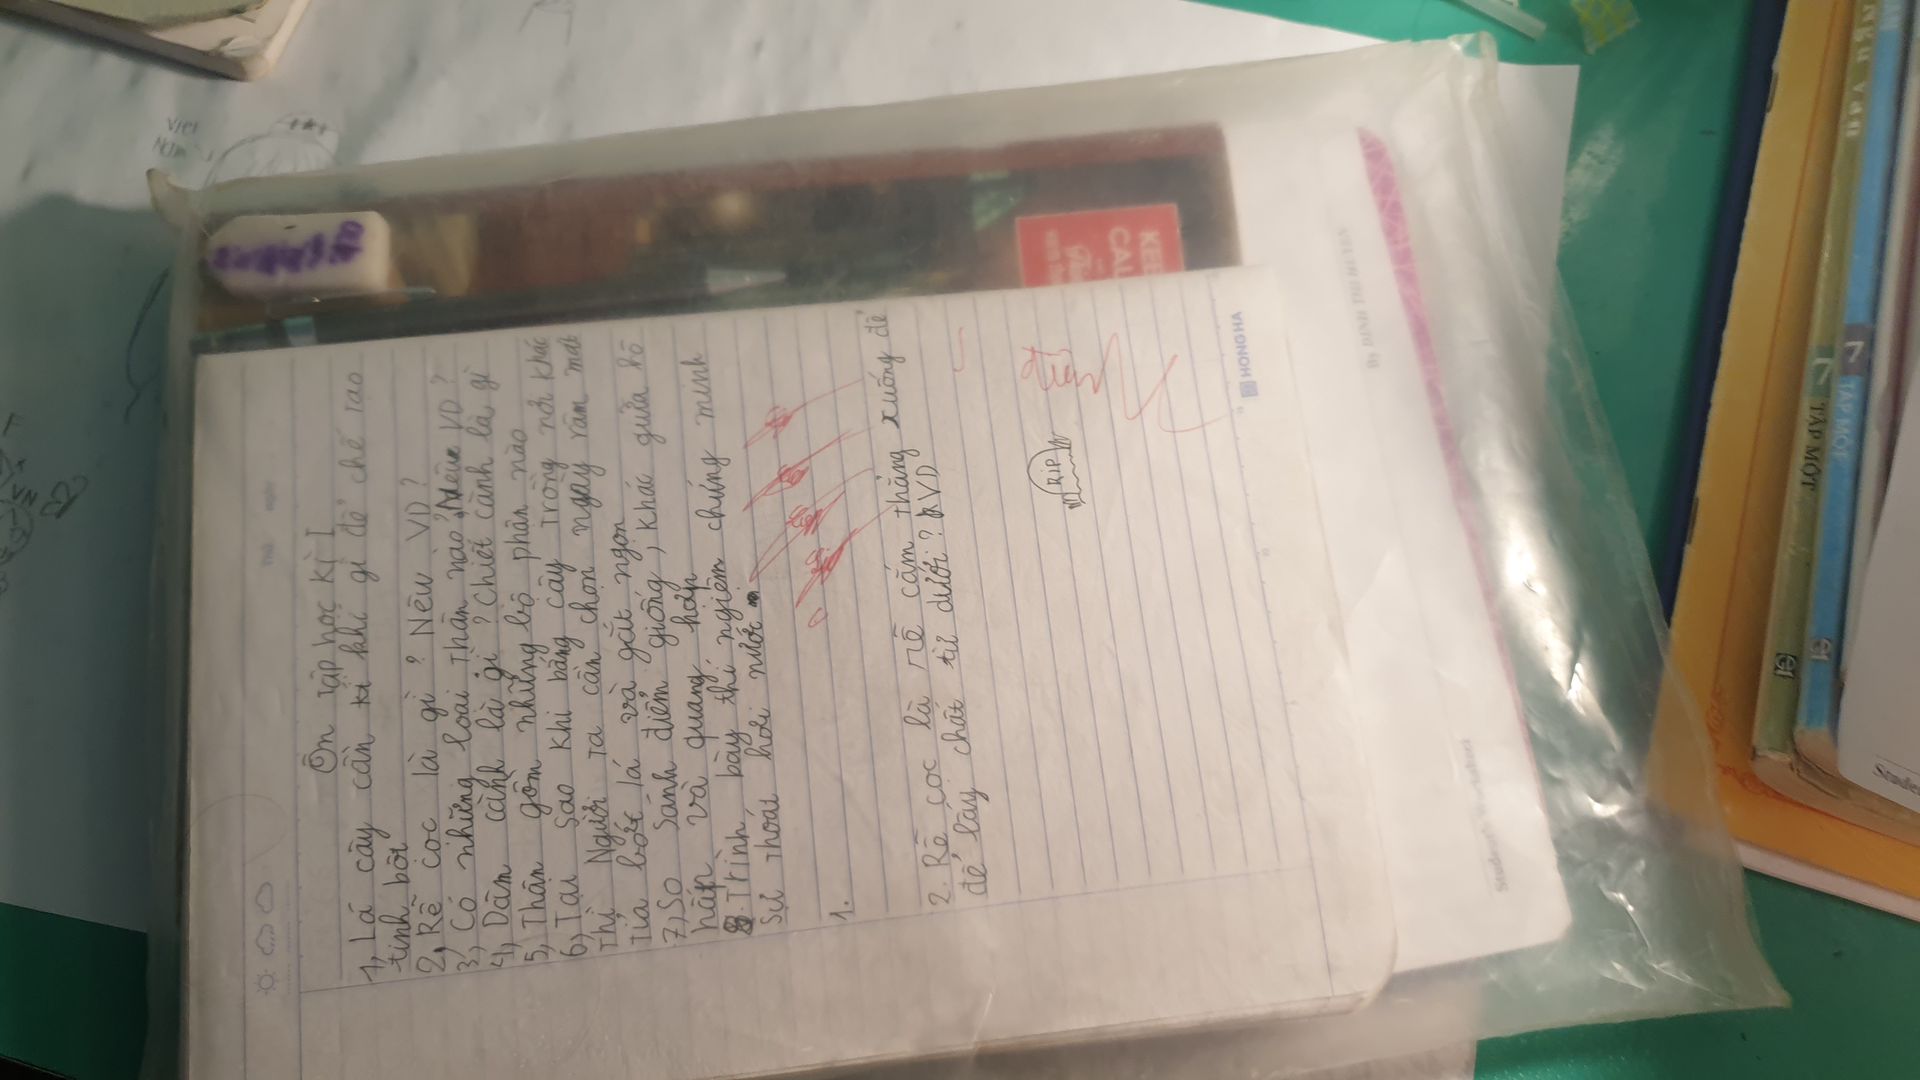 Ôn tập học kì I
1, Lá cây cần khí gì để chế tạo
tinh bột
2, Rễ cọc là gì ? Nêu VD ?
3, Có những loại thân nào ? Nêu VD ?
4, Dâm cành là gì ? Chiết cành là gì
5, Thân gồm những bộ phận nào
6, Tại sao khi bấng cây trồng nơi khác
thì Người ta cần chọn ngày râm mát
tỉa bớt lá và gắt ngọn
7, So sánh điểm giống, khác giữa hô
hấp và quang hợp
8. Trình bày thí ngiệm chứng minh
sự thoát hơi nước.
1.
2. Rễ cọc là rễ cắm thẳng xuống để
để lấy chất từ dưới ? VD
RIP
HONG HA
KEE
CAL
By DINH THI HUYEN
VIET
NAM
VN
TẬP MỘT
7
TẬP MỘT